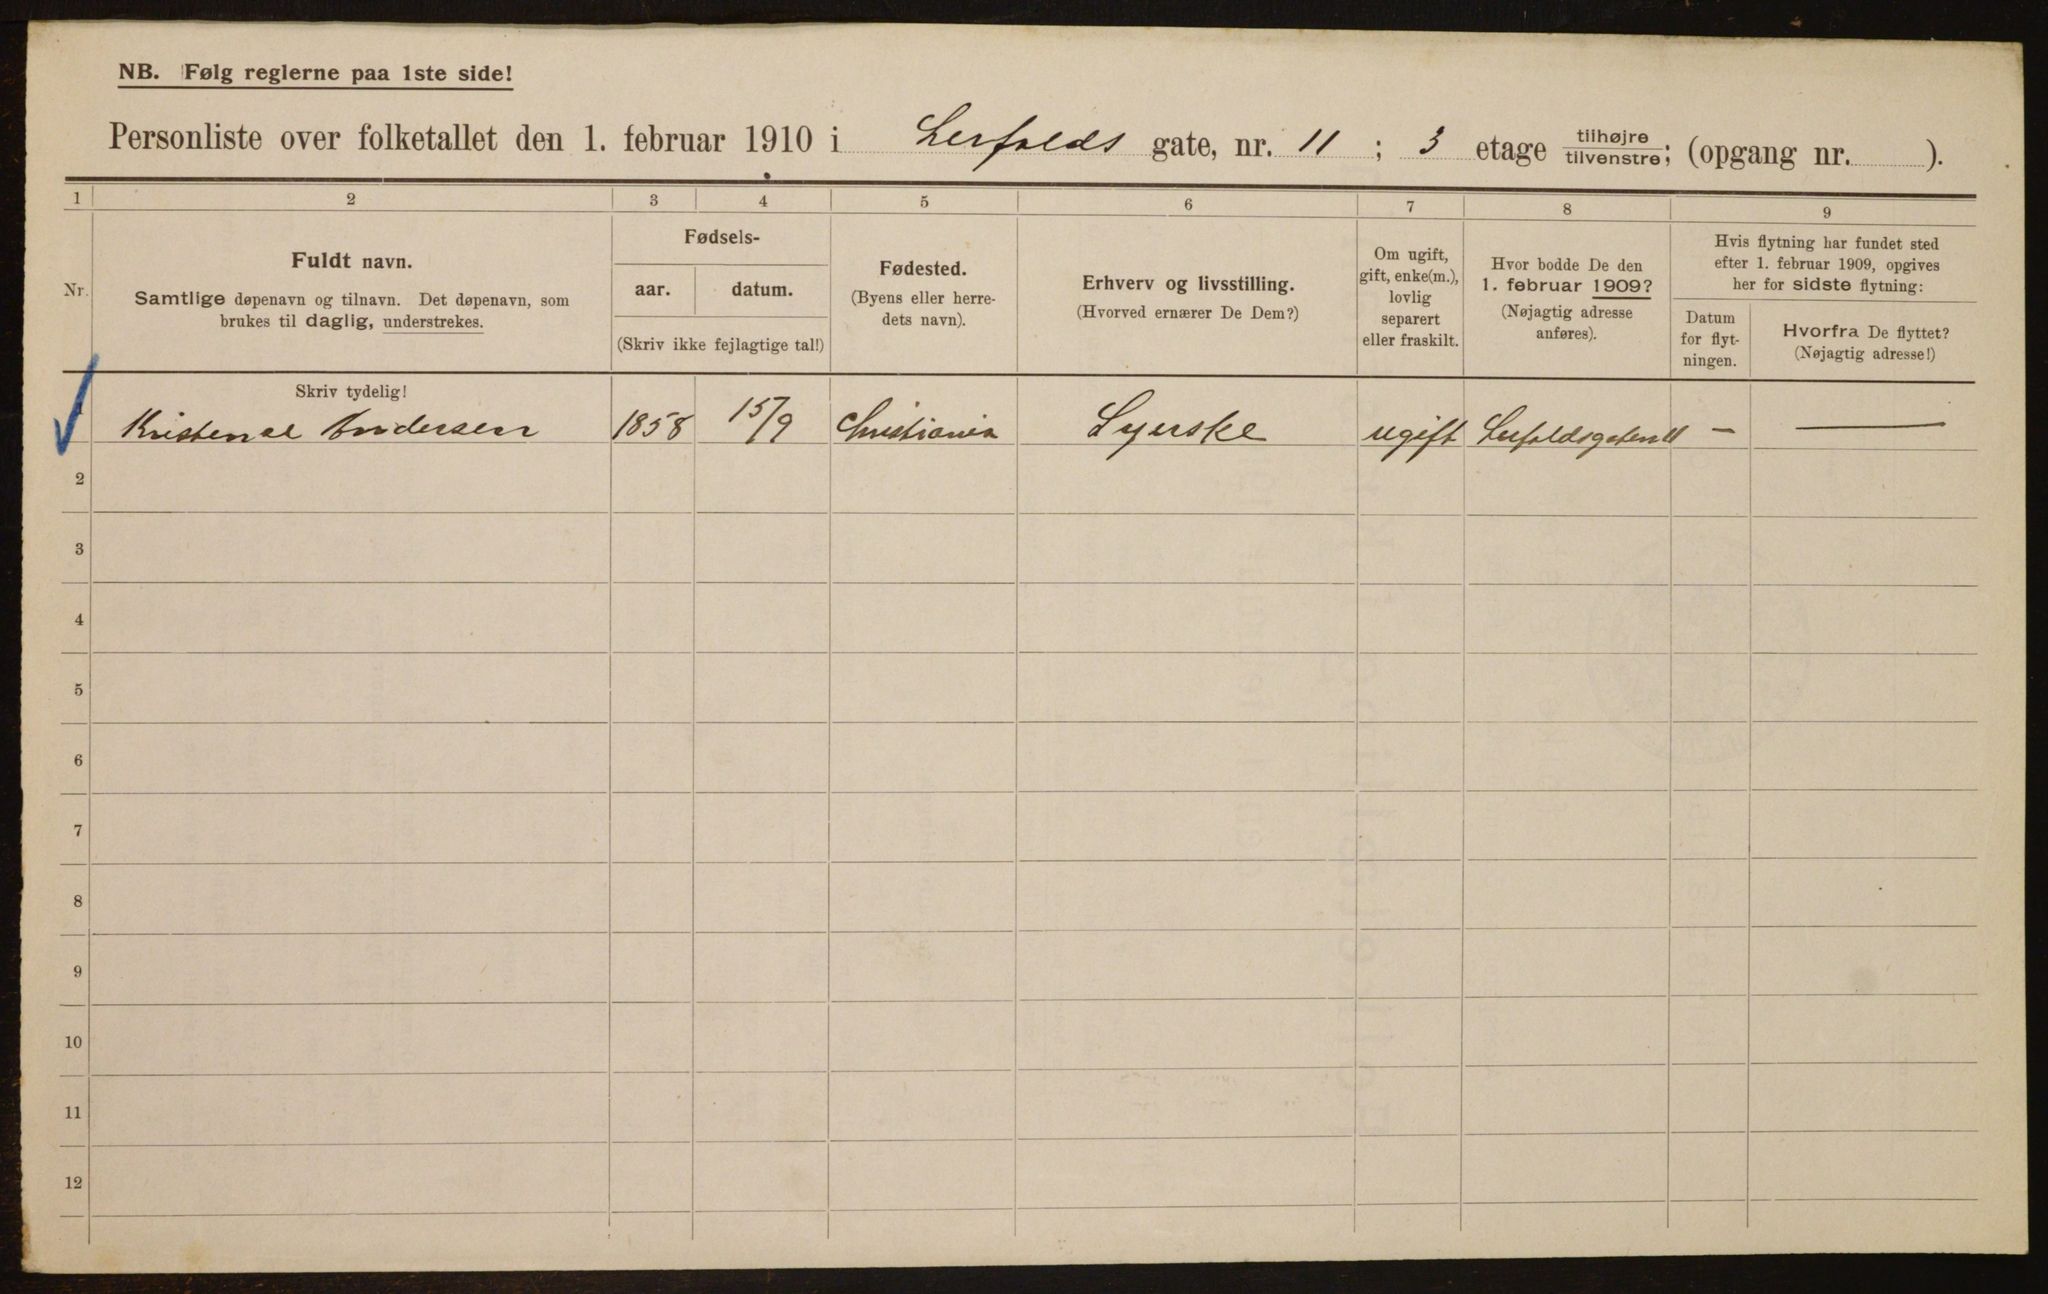 NB. Følg reglerne paa 1ste side!
Personliste over folketallet den 1. februar 1910 i Lerfalds gate, nr. 11 ; 3 etage tilhøjre/tilvenstre; (opgang nr. ).
1 2 3 4 5 6 7 8 9
Nr.
Fuldt navn.
Samtlige døpenavn og tilnavn. Det døpenavn, som
brukes til daglig, understrekes.
Fødsels-
aar. datum.
(Skriv ikke fejlagtige tal!)
Fødested.
(Byens eller herre-
dets navn).
Erhverv og livsstilling.
(Hvorved ernærer De Dem?)
Om ugift,
gift, enke(m.),
lovlig
separert
eller fraskilt.
Hvor bodde De den
1. februar 1909?
(Nøjagtig adresse
anføres).
Hvis flytning har fundet sted
efter 1. februar 1909, opgives
her for sidste flytning:
Datum
for flyt-
ningen.
Hvorfra De flyttet?
(Nøjagtig adresse!)
Skriv tydelig!
1 Andersen 1858 15/9 Christiania Syerske ugift Lerfaldsgaten 11 – —
2
3
4
5
6
7
8
9
10
11
12